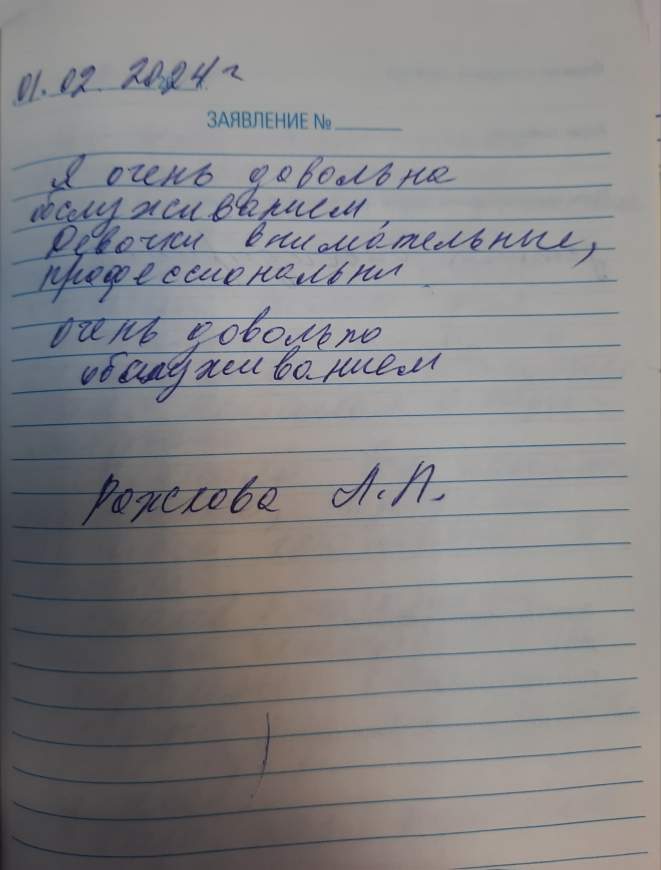 01.02 2024 г
ЗАЯВЛЕНИЕ №
Я очень довольна
обслуживанием,
Девочки внимательные,
профессиональны
очень довольна
обслуживанием
Л.П.